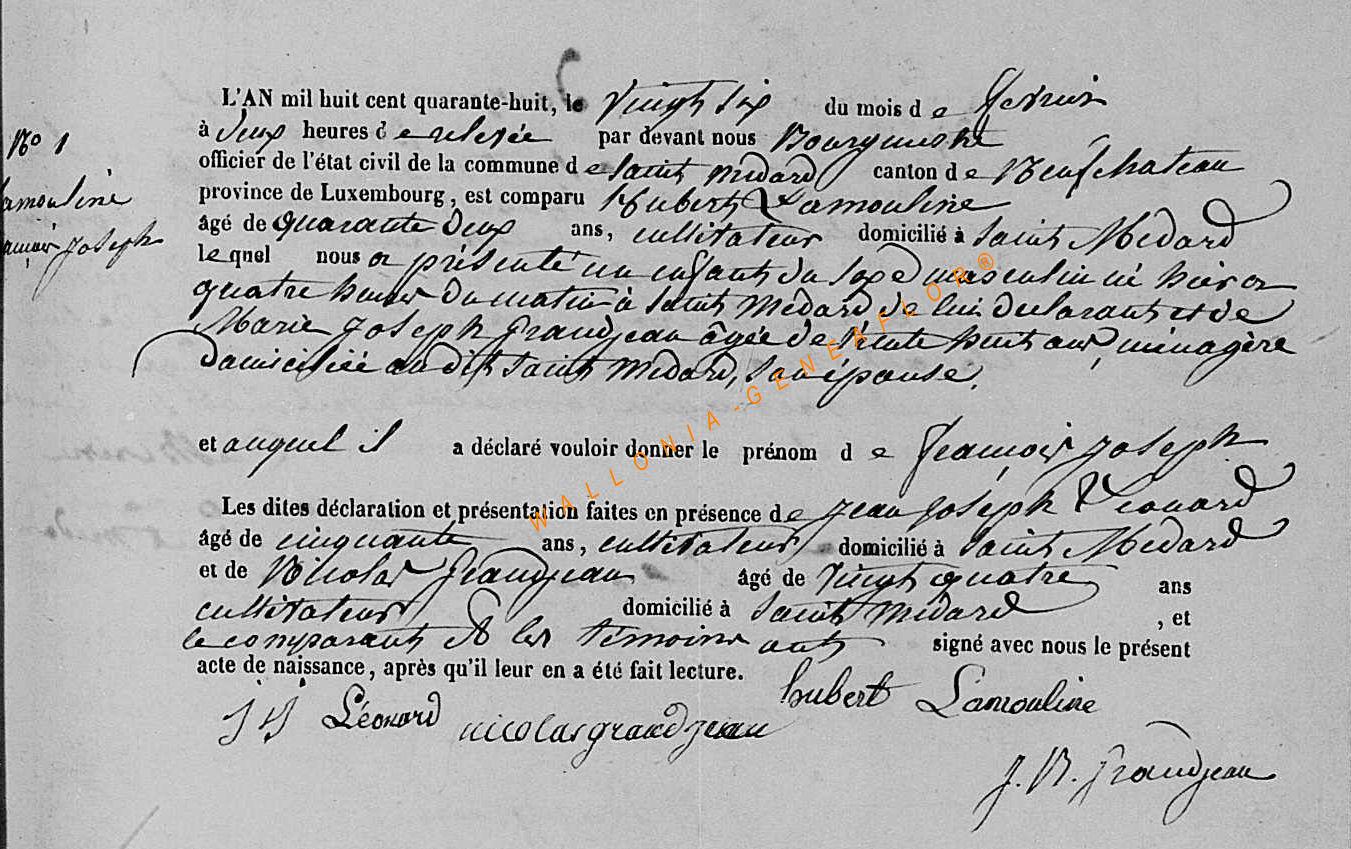 L'AN mil huit cent quarante-huit, le vingt six du mois de fevrier
à deux heures de relevée par devant nous Bourgmestre
officier de l'état civil de la commune de Saint Médard canton de Neufchateau
province de Luxembourg, est comparu Hubert Lamouline
âgé de quarante deux ans, cultivateur domicilié à Saint Médard
le quel nous a présenté un enfant du sexe masculin né hier a
quatre heures du matin à Saint Médard de lui declarant et de
Marie Joseph Grandjean âgée de trente huit ans, ménagère
domiciliée au dit Saint Médard, son épouse,
et auquel il a déclaré vouloir donner le prénom de François Joseph
Les dites déclaration et présentation faites en présence de Jean Joseph Léonard
âgé de cinquante ans, cultivateur domicilié à Saint Médard
et de Nicolas Grandjean âgé de vingt quatre ans
cultivateur domicilié à Saint Médard, et
le comparant & les témoins ont signé avec nous le présent
acte de naissance, après qu'il leur en a été fait lecture.
No 1
amouline
ançois Joseph
hubert Lamouline
J J Léonard nicolas grandjean
J. N. Grandjean
WALLONIA-GENEAFLOR®